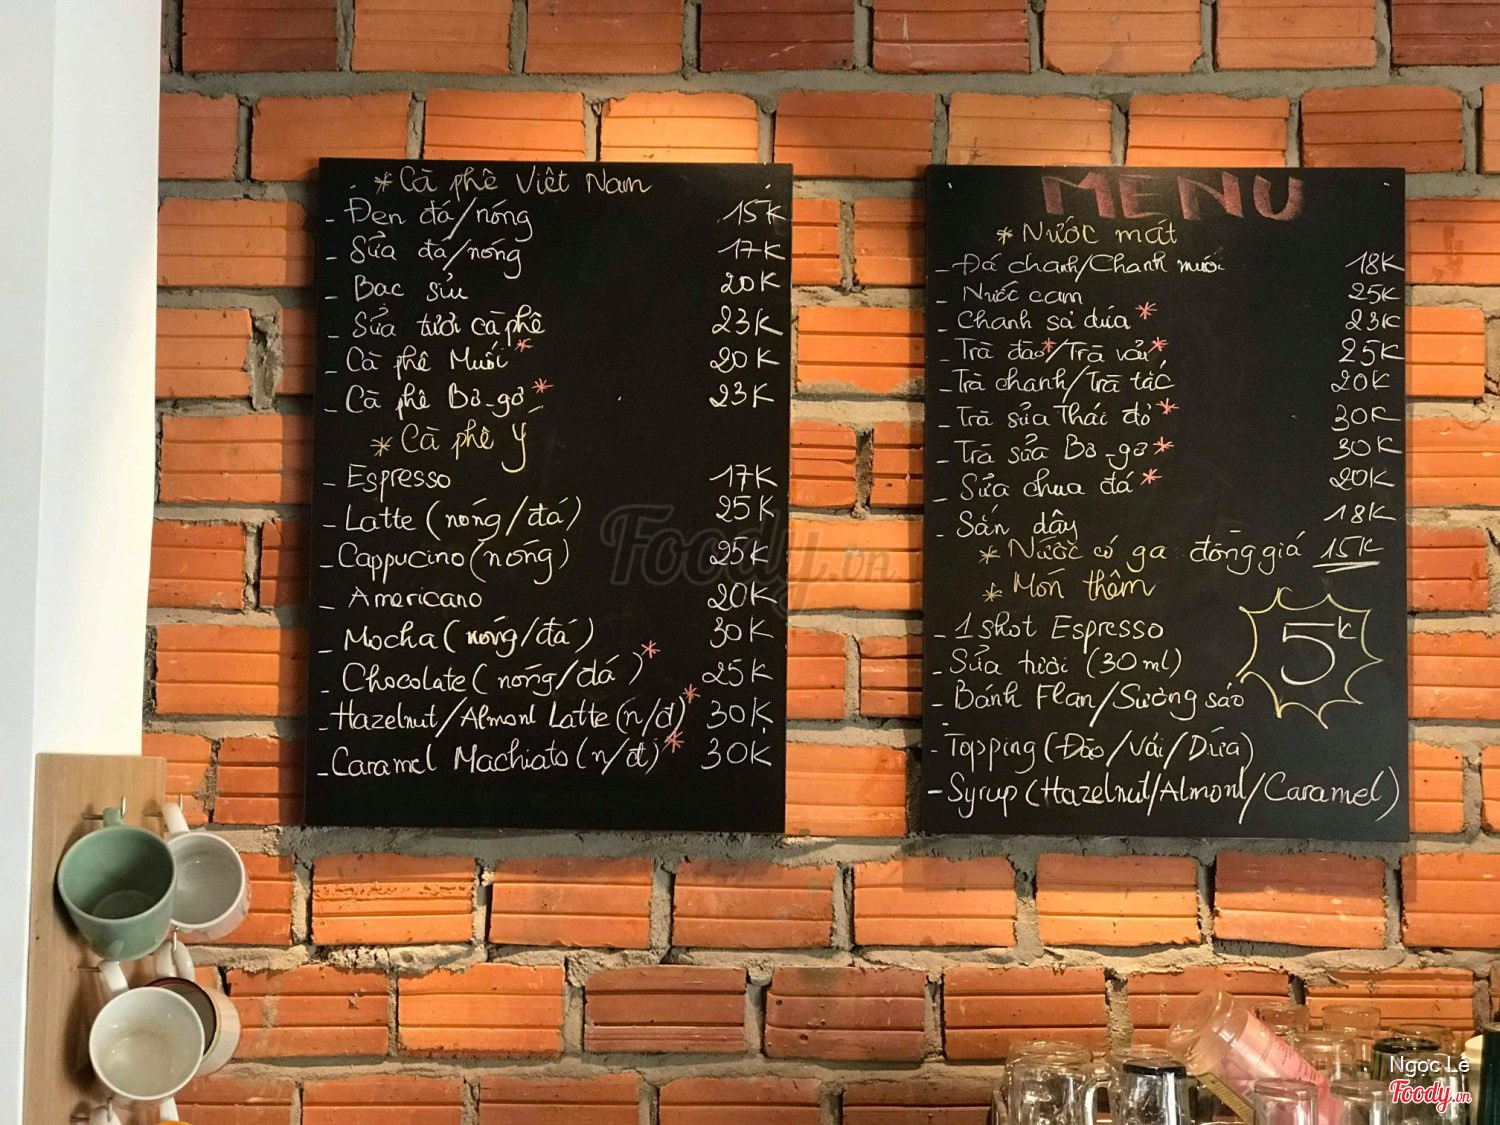 * Cà phê Việt Nam
- Đen đá/nóng 15K
- Sữa đá/nóng 17K
- Bạc sỉu 20K
- Sữa tươi cà phê 23K
- Cà phê Muối * 20K
- Cà phê Bơ-gơ * 23K
* Cà phê Ý
- Espresso 17K
- Latte (nóng/đá) 25K
- Cappucino (nóng) 25K
- Americano 20K
- Mocha (nóng/đá) 30K
- Chocolate (nóng/đá) * 25K
- Hazelnut/Almond Latte (n/đ) * 30K
- Caramel Machiato (n/đ) * 30K
MENU
* Nước mát
- Đá chanh/Chanh muối 18K
- Nước cam 25K
- Chanh sả dứa * 23K
- Trà đào*/Trà vải* 25K
- Trà chanh/Trà tắc 20K
- Trà sữa Thái đỏ * 30K
- Trà sữa Bơ-gơ * 30K
- Sữa chua đá * 20K
- Sắn dây 18K
* Nước có ga đồng giá 15K
* Món thêm
- 1 shot Espresso
- Sữa tươi (30ml)
- Bánh Flan/Sương sáo
- Topping (Đào/Vải/Dứa)
- Syrup (Hazelnut/Almond/Caramel)
5K
Foody.vn
Ngọc Lê
Foody.vn